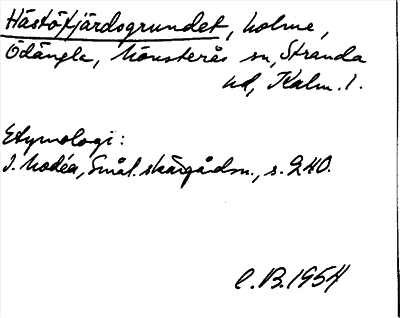 Hästöfjärdsgrundet, holme,
Ödängla, Mönsterås sn, Stranda
hd, Kalm. l.
Etymologi:
I. Modéer, Smål. skärgårdsn., s. 240.
C.B. 1954